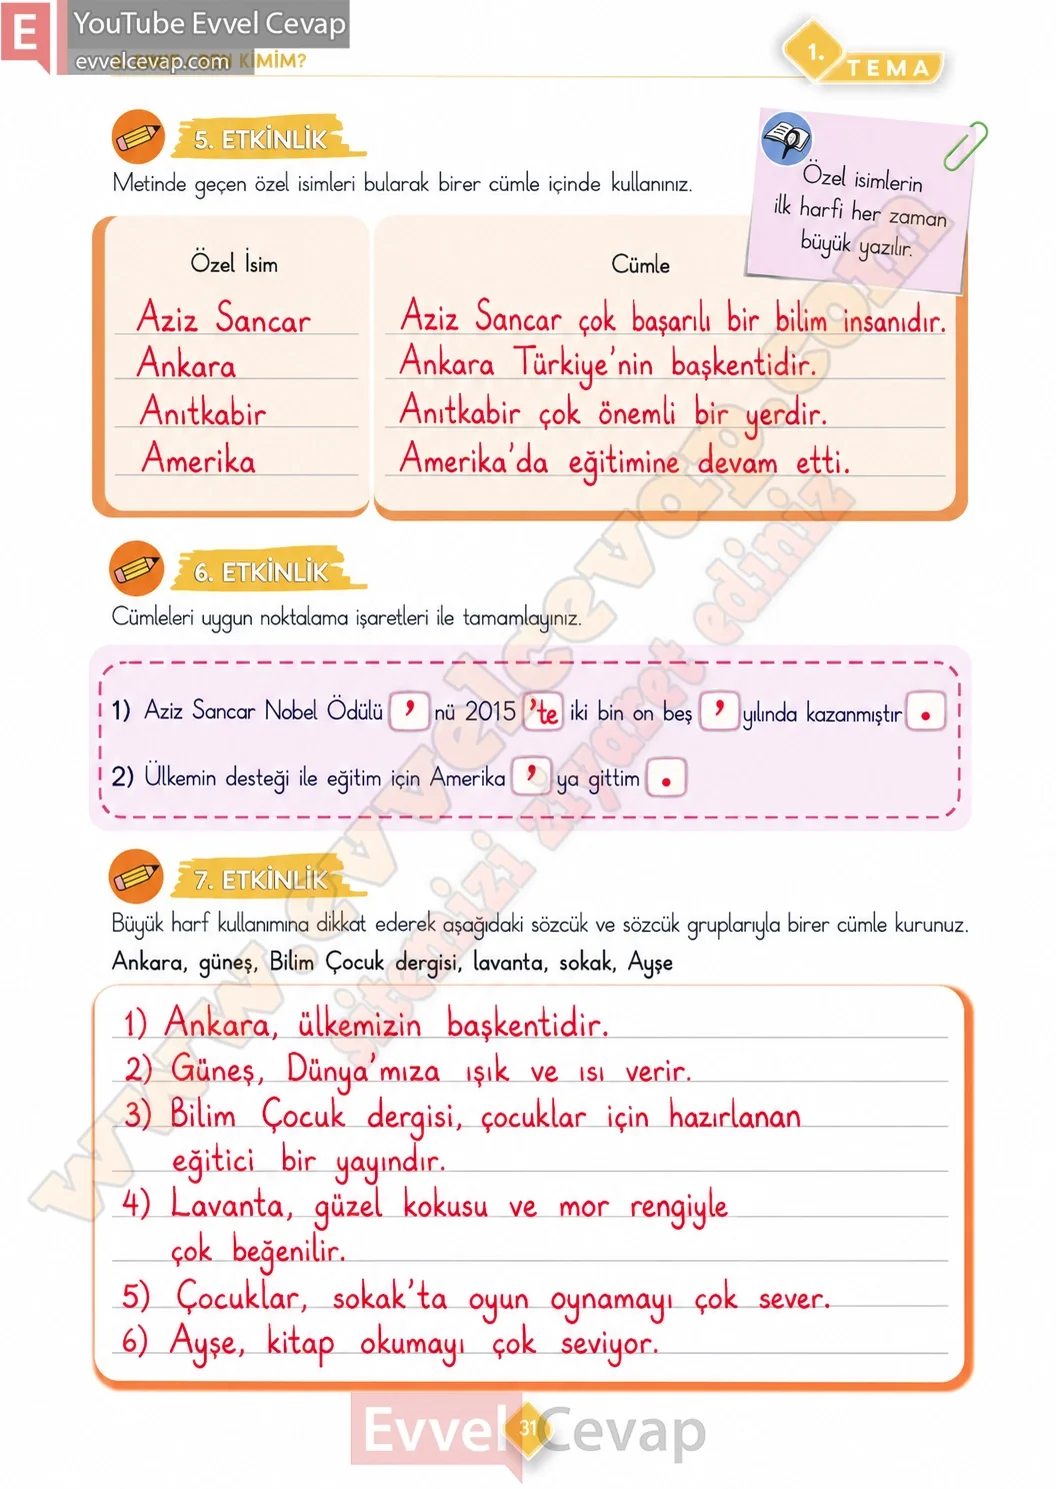 E
YouTube Evvel Cevap
evvelcevap.com
KİMİM?
1.
TEMA
5. ETKİNLİK
Metinde geçen özel isimleri bularak birer cümle içinde kullanınız.
Özel isimlerin
ilk harfi her zaman
büyük yazılır.
Özel İsim
Cümle
Aziz Sancar
Aziz Sancar çok başarılı bir bilim insanıdır.
Ankara
Ankara Türkiye'nin başkentidir.
Anıtkabir
Anıtkabir çok önemli bir yerdir.
Amerika
Amerika'da eğitimine devam etti.
6. ETKİNLİK
Cümleleri uygun noktalama işaretleri ile tamamlayınız.
1) Aziz Sancar Nobel Ödülü ' nü 2015 'te iki bin on beş ' yılında kazanmıştır .
2) Ülkemin desteği ile eğitim için Amerika ' ya gittim .
7. ETKİNLİK
Büyük harf kullanımına dikkat ederek aşağıdaki sözcük ve sözcük gruplarıyla birer cümle kurunuz.
Ankara, güneş, Bilim Çocuk dergisi, lavanta, sokak, Ayşe
1) Ankara, ülkemizin başkentidir.
2) Güneş, Dünya'mıza ışık ve ısı verir.
3) Bilim Çocuk dergisi, çocuklar için hazırlanan
eğitici bir yayındır.
4) Lavanta, güzel kokusu ve mor rengiyle
çok beğenilir.
5) Çocuklar, sokak'ta oyun oynamayı çok sever.
6) Ayşe, kitap okumayı çok seviyor.
www.evvelcevap.com
sitemizi ziyaret ediniz
Evvel Cevap
31